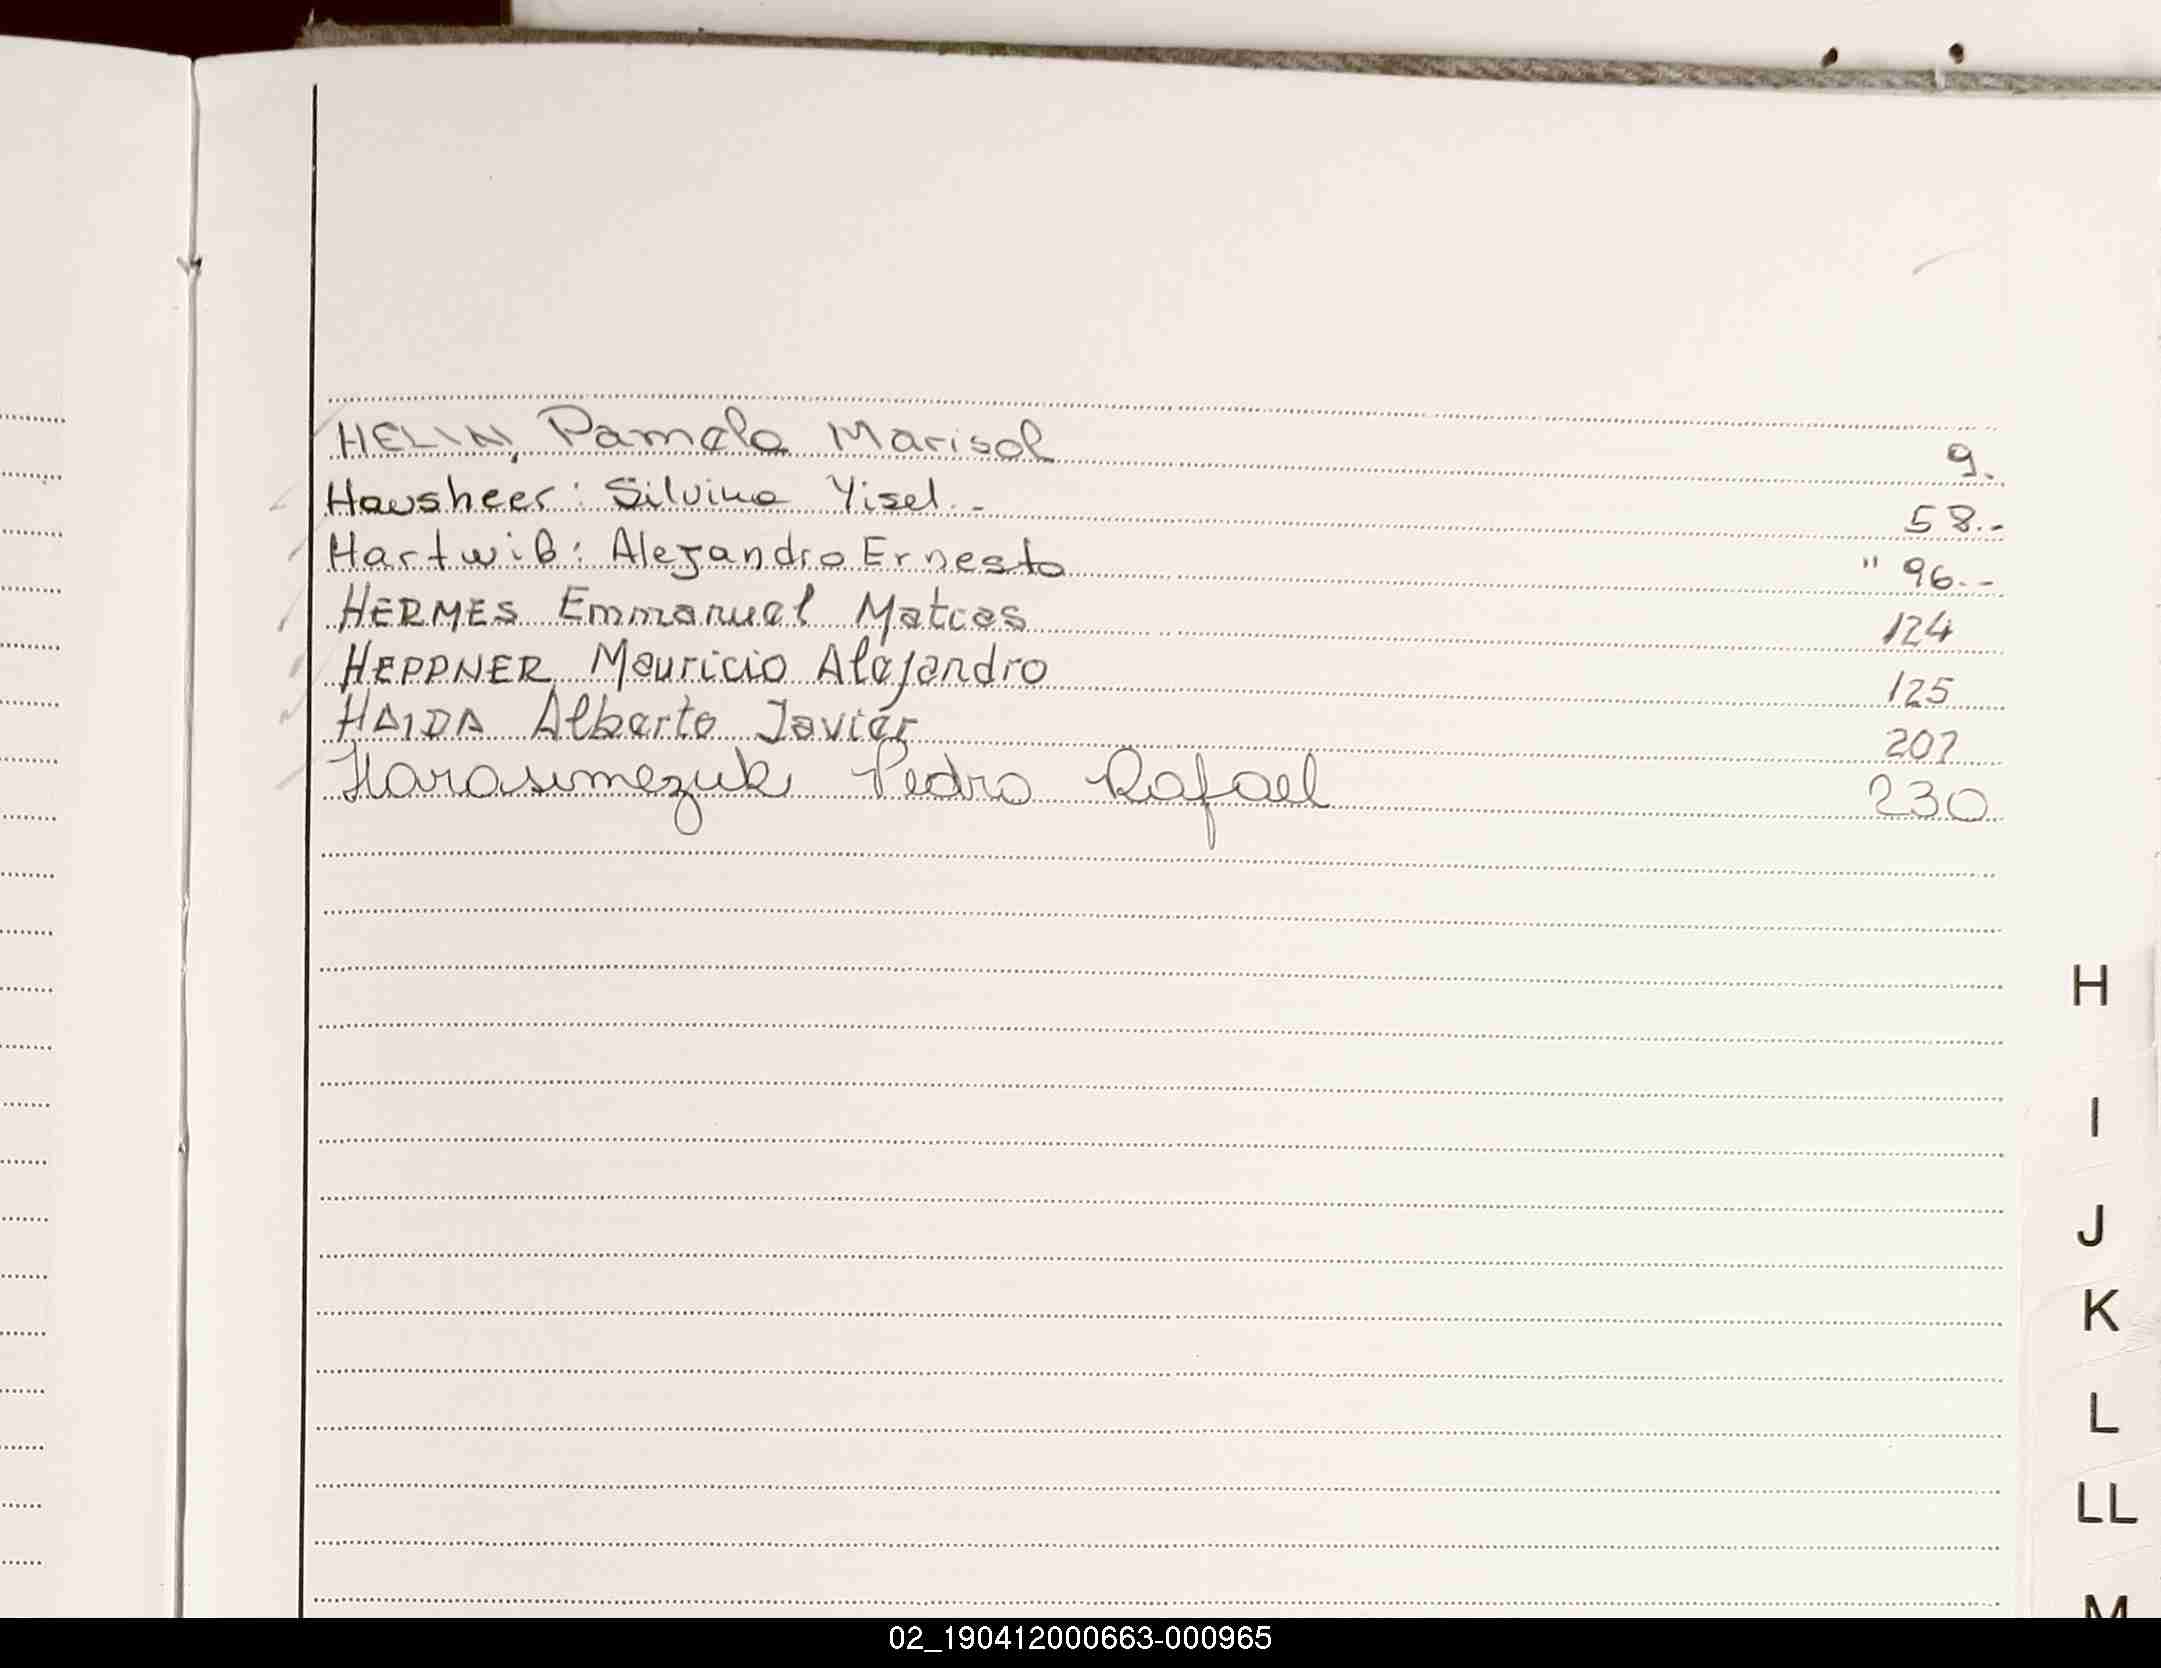 HELIN, Pamela Marisol 9.
Hausheer: Silvina Yisel.- 58.-
Hartwig: Alejandro Ernesto " 96.-
HERMES Emmanuel Matias 124
HEPPNER Mauricio Alejandro 125
HAIDA Alberto Javier 207
Harasimezuk Pedro Rafael 230
H
I
J
K
L
LL
M
02_190412000663-000965